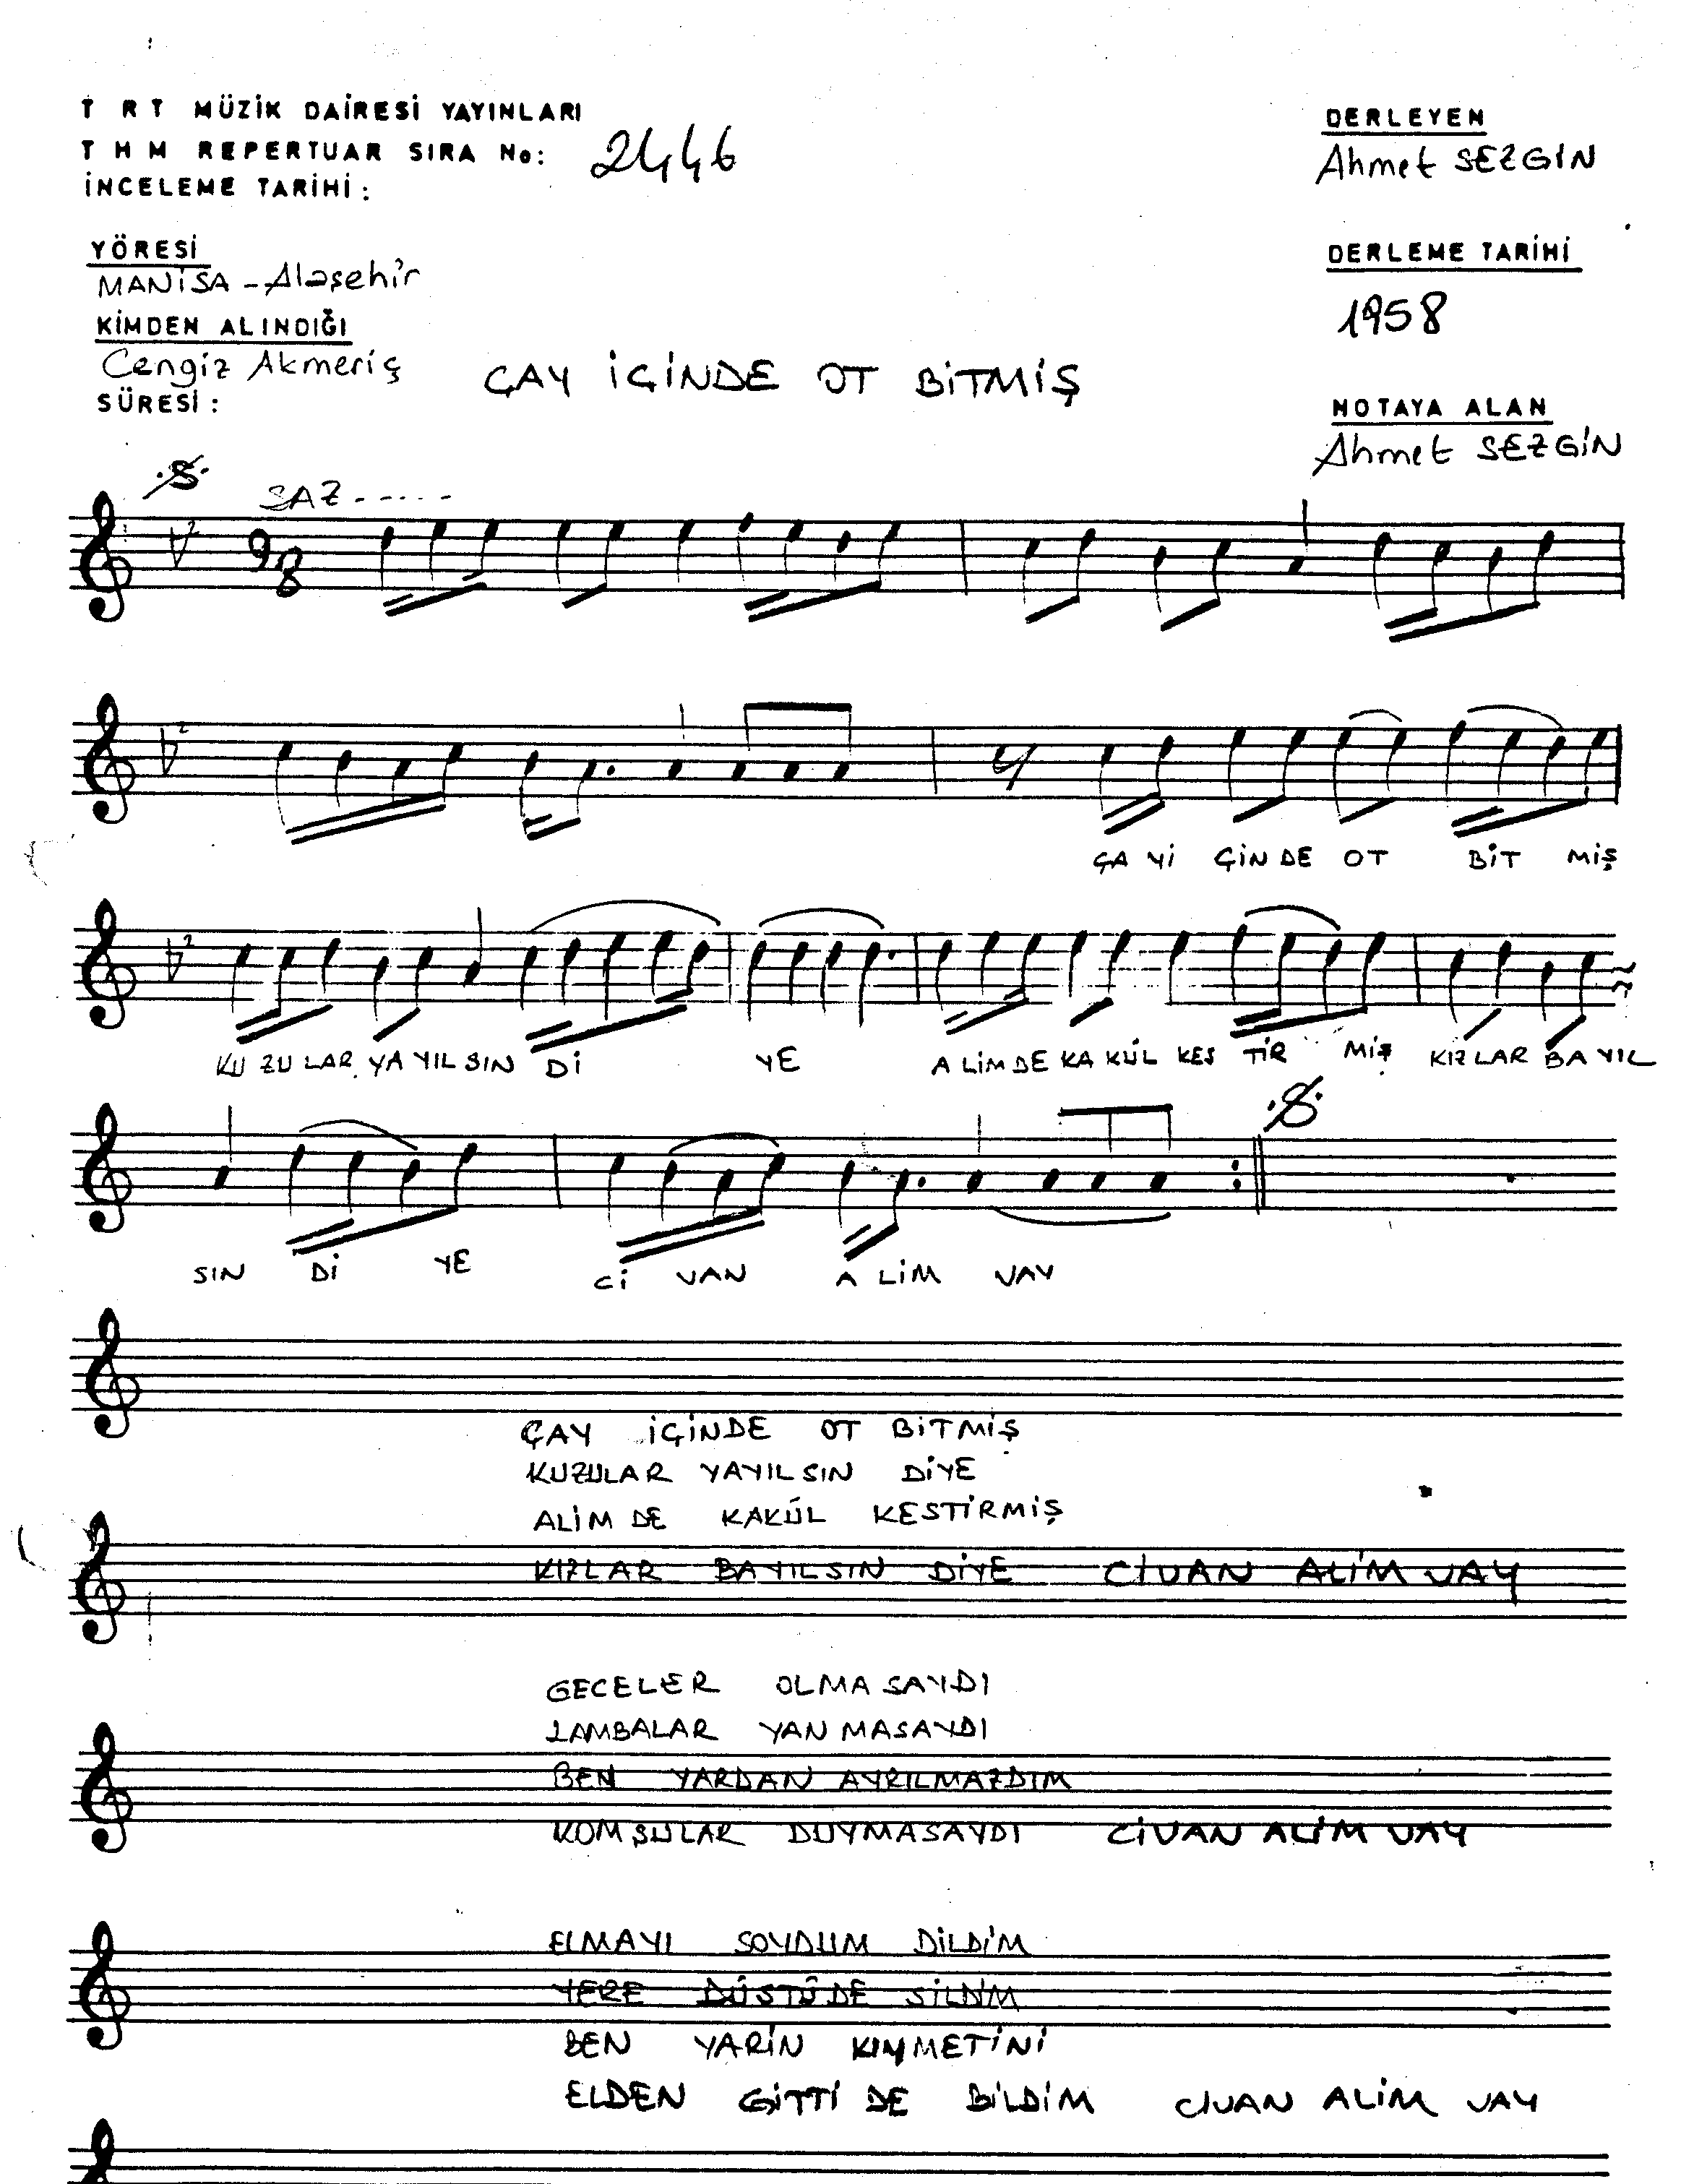 T R T MÜZİK DAİRESİ YAYINLARI
T H M REPERTUAR SIRA No: 2446
İNCELEME TARİHİ :
DERLEYEN
Ahmet SEZGİN
YÖRESİ
MANİSA - Alaşehir
DERLEME TARİHİ
1958
KİMDEN ALINDIĞI
Cengiz Akmeriç
SÜRESİ :
ÇAY İÇİNDE OT BİTMİŞ
NOTAYA ALAN
Ahmet SEZGİN
SAZ - - - - -
9 8
ÇA Yİ ÇİN DE OT BİT MİŞ
KU ZU LAR YA YIL SIN Dİ YE A LİM DE KA KÜL KES TİR MİŞ KIZ LAR BA YIL
SIN Dİ YE Cİ VAN A LİM VAY
ÇAY İÇİNDE OT BİTMİŞ
KUZULAR YAYILSIN DİYE
ALİM DE KAKÜL KESTİRMİŞ
KIZLAR BAYILSIN DİYE CİVAN ALİM VAY
GECELER OLMASAYDI
LAMBALAR YANMASAYDI
BEN YARDAN AYRILMAZDIM
KOMŞULAR DUYMASAYDI CİVAN ALİM VAY
ELMAYI SOYDUM DİLDİM
YERE DÜŞTÜ DE SİLDİM
BEN YARİN KIYMETİNİ
ELDEN GİTTİ DE BİLDİM CİVAN ALİM VAY